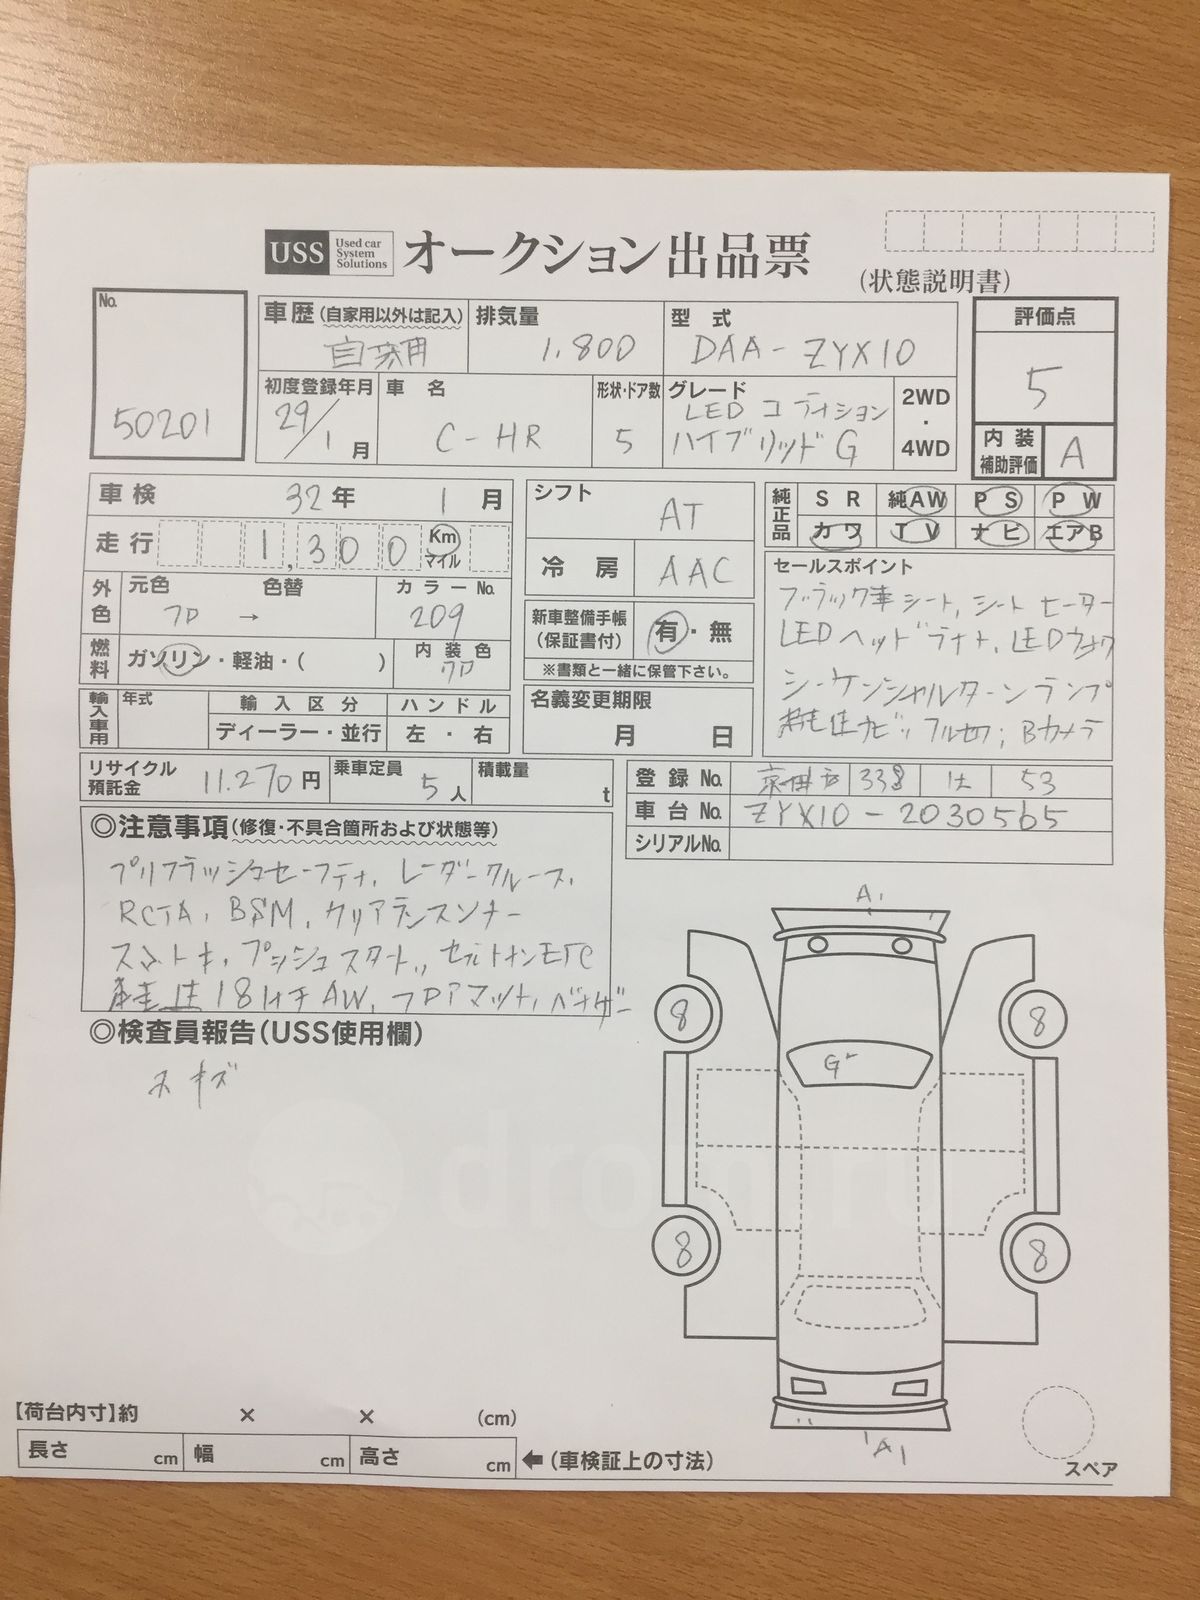 USS Used car System Solutions オークション出品票
(状態説明書)
No. 50201
車歴 (自家用以外は記入) 自家用
排気量 1,800
型式 DAA-ZYX10
評価点 5
内装補助評価 A
初度登録年月 29/1月
車名 C-HR
形状・ドア数 5
グレード LED
ハイブリッドG
2WD・4WD
車検 32年 1月
走行 1,300 Km マイル
外色 元色 クロ → 色替
カラーNo. 209
燃料 ガソリン・軽油・( )
内装色 クロ
輸入車用 年式
輸入区分 ディーラー・並行
ハンドル 左・右
シフト AT
冷房 AAC
新車整備手帳(保証書付) 有・無
※書類と一緒に保管下さい。
名義変更期限 月 日
純正品 SR 純AW PS PW
カワ TV ナビ エアB
セールスポイント
革シート, シートヒーター
LEDヘッド LED
シーケンシャルターンランプ
ナビ, フルセグ, Bカメラ
リサイクル預託金 11.270円
乗車定員 5人
積載量 t
登録No. 338 53
車台No. ZYX10-2030565
シリアルNo.
◎注意事項(修復・不具合箇所および状態等)
レーダークルーズ,
RCTA, BSM, クリアランスソナー
プッシュスタート, ETC
18 AW, フロアマット, バイザー
◎検査員報告(USS使用欄)
キズ
A1
8 8
G
8 8
A1
drom.ru
【荷台内寸】約 × × (cm)
長さ cm 幅 cm 高さ cm ←(車検証上の寸法)
スペア